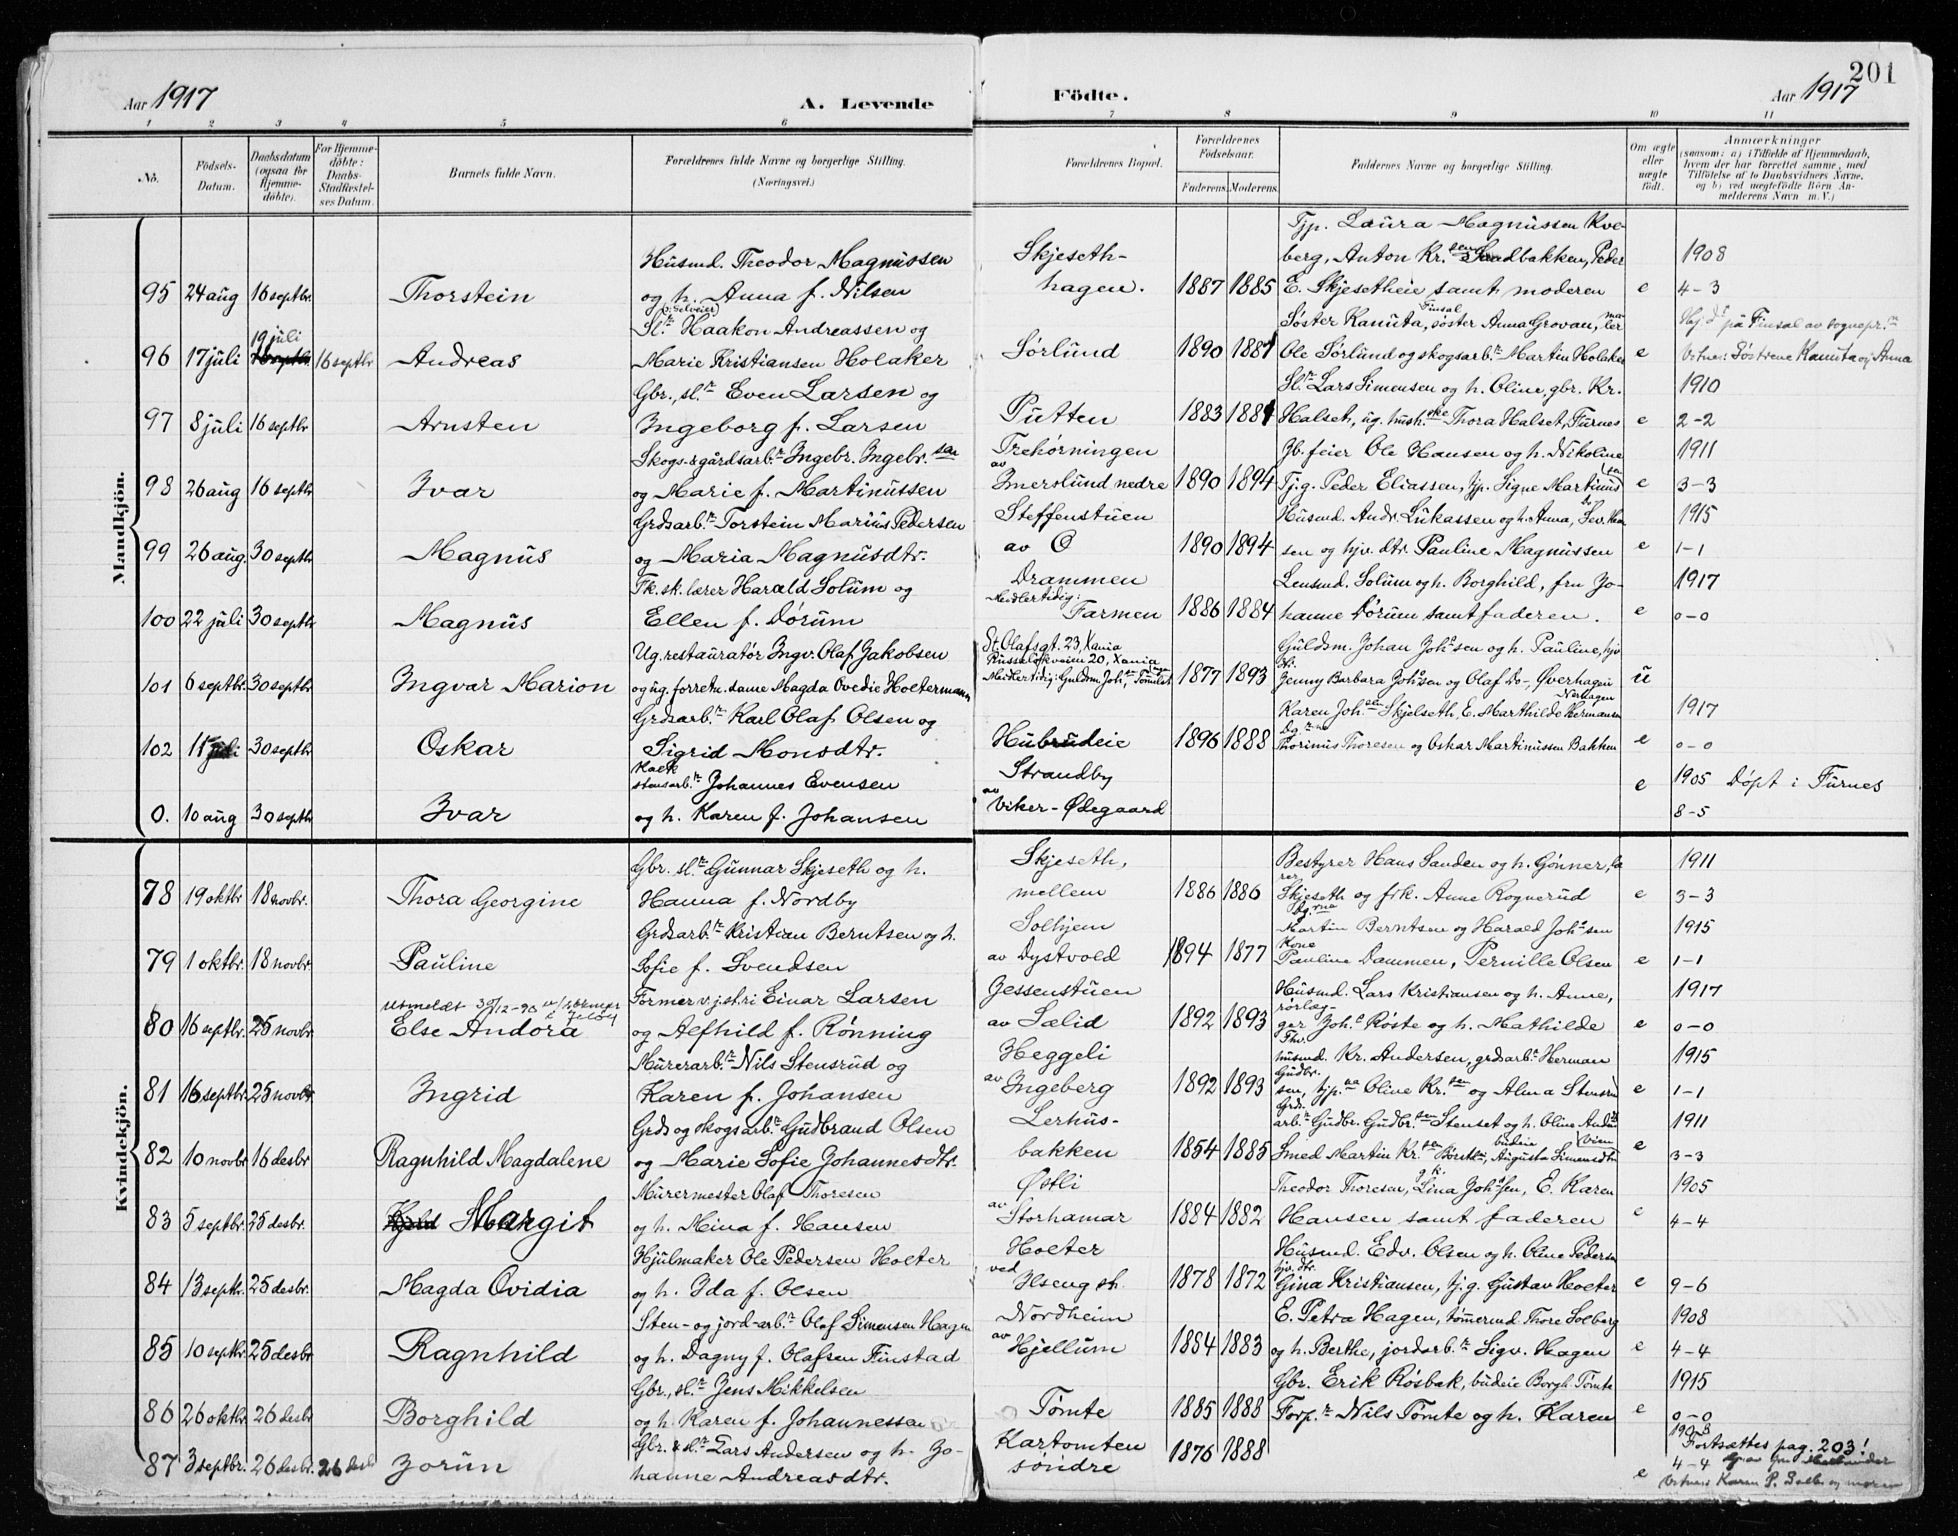 201
Aar 1917 A. Levende Födte. Aar 1917
1 2 3 4 5 6 7 8 9 10 11
No. Födsels-Datum. Daabsdatum (ogsaa for Hjemme-döbte). For Hjemme-döbte: Daabs-Stadfæstel-ses Datum. Barnets fulde Navn. Forældrenes fulde Navne og borgerlige Stilling. (Næringsvei.) Forældrenes Bopæl. Forældrenes Födselsaar. Faderens. Moderens. Faddernes Navne og borgerlige Stilling. Om ægte eller uægte født. Anmærkninger
(saasom: a) i Tilfælde af Hjemmedaab,
hvem der har forrettet samme, med
Tilföielse af to Daabsvidners Navne.
og b) ved uægtefödte Börn An-
melderens Navn m. V.)
Mandkjön.
Tjp. Laura Magnussen Kve-
Husmd. Theodor Magnussen Skjeseth- berg, Anton Kr.sen Sandbakken, Peder 1908
95 24 aug 16 septbr. Thorstein og h. Anna f. Nilsen hagen. 1887 1885 E. Skjesetheie samt moderen e 4-3
19 juli Sl.r Haakon Andreassen og Søster Kanuta, søster Anna Grovan, Finsal Hj.d. på Finsal av sognepr.
96 17 juli 16 septbr Andreas Marie Kristiansen Holaker Sørlund 1890 1887 Ole Sørlund og skogsarb.r Martin Holaker e Vitner: Søstrene Kanuta og Anna
Gbr., sl.r Even Larsen og Sl.r Lars Simensen og h. Oline, gbr. Kr. 1910
97 8 juli 16 septbr Arnsten Ingeborg f. Larsen Putten 1883 1884 Halset, ug. hush.ske Thora Halset, Furnes e 2-2
Skogs- & gårdsarb.r Ingebr. Ingebr.sen Trehørningen Jb.feier Ole Hansen og h. Nikoline 1911
98 26 aug 16 septbr Ivar og Marie f. Martinussen av Imerslund nedre 1890 1894 Tj.g. Peder Eliassen, tjp. Signe Martinussen e 3-3
Grdsarb.r Torstein Marius Pedersen Steffenstuen Husmd. Andr. Lukassen og h. Anna, Sev. Han- 1915
99 26 aug. 30 septbr Magnus og Maria Magnusdtr. av O 1890 1894 sen og hjv. dtr. Pauline Magnussen e 1-1
Tk.sk. lærer Harald Solum og Drammen Lensmd. Solum og h. Borghild, fru Jo- 1917
100 22 juli 30 septbr Magnus Ellen f. Dørum Midlertidig: Farmen 1886 1884 hanne Dørum samt faderen. e 0-0
Ug. restauratør Ingv. Olaf Jakobsen St. Olafsgt. 23, Xania Russeløkveien 20, Xania Guldsm. Johan Joh.sen og h. Pauline, hjv
101 6 septbr. 30 septbr Ingvar Marion og ug. forretn. dame Magda Ovedie Holtermann Midlertidig: Guldsm. Joh.sen, Tomter 1877 1893 Jenny Barbara Joh.sen og Olaf Do-, Øverhagen u
Grdsarb.r Karl Olaf Olsen og Karen Joh.sen Skjelseth, E. Marthilde Hermansen 1917
102 11 juli 30 septbr Oskar Sigrid Monsdtr. Hubrudeie 1896 1888 Thorinus Thoresen og Oskar Martinussen Bakken e 0-0
Kalkstensarb.r Johannes Evensen Strandby e 1905 Døpt i Furnes
0. 10 aug 30 septbr Ivar og h. Karen f. Johansen av Viker-Ødegaard 8-5
Kvindekjön.
Gbr. sl.r Gunnar Skjeseth og h. Skjeseth, Bestyrer Hans Sanden og h. Gønner, la- 1911
78 19 oktbr 18 novbr. Thora Georgine Hanna f. Nordby mellem 1886 1886 Skjeseth og frk. Anne Rognerud e 3-3
Grdsarb.r Kristian Berntsen og h. Solhjem Martin Berntsen og Harald Joh.sen 1915
79 1 oktbr. 18 novbr. Pauline Sofie f. Svendsen av Dystvold 1894 1877 Kone Pauline Dammen, Pernille Olsen e 1-1
utmeldt 30/12-90 Former v. j.st.ri Einar Larsen Gessenstuen Husmd. Lars Kristiansen og h. Anne, 1917
80 16 septbr. 25 novbr. Else Andora og Alfhild f. Rønning av Sælid 1892 1893 rørlæg-ger Joh.s Røste og h. Mathilde e 0-0
Murerarb.r Nils Stensrud og Heggeli husmd. Kr. Andersen, grdsarb.r Herman 1915
81 16 septbr. 25 novbr Ingrid Karen f. Johansen av Ingeberg 1892 1893 Gudbr.sen, tjp. Oline Kr.sen og Alma Stensrud e 1-1
Grds og skogsarb.r Gudbrand Olsen Lerhus- Grdsarb.r Gudbr. Gudbr.sen Stenset og h. Oline 1911
82 10 novbr 16 desbr. Ragnhild Magdalene og Marie Sofie Johannesdtr. bakken 1854 1885 Smed Martin Kr.sen, budeie Augusta Simensdtr e 3-3
Murermester Olaf Thoresen Østli Theodor Thoresen, g.k. Lina Joh.sen, E. Karen 1905
83 5 septbr. 25 desbr. Margit og h. Mina f. Hansen av Storhamar 1884 1882 Hansen samt faderen e 4-4
Hjulmaker Ole Pedersen Holter Holter Husmd. Edv. Olsen og h. Oline Pedersen
84 13 septbr. 25 desbr. Magda Ovidia og h. Ida f. Olsen ved Ilseng st. 1878 1872 hjv. dtr. Gina Kristiansen, tj.g. Gustav Holter e 9-6
Sten- og jord-arb.r Olaf Simensen Hagen Nordheim E. Petra Hagen, tømermd Thore Solberg 1908
85 10 septbr. 25 desbr Ragnhild og h. Dagny f. Olafsen Finstad av Hjellum 1884 1883 og h. Berthe, jordarb.r Sigv. Hagen e 4-4
Gbr., sl.r Jens Mikkelsen Gbr. Erik Røsbak, budeie Borgh. Tomte 1915
86 26 oktbr. 26 desbr Borghild og h. Karen f. Johannessen Tomte 1885 1888 Forp.r Nils Tomte og h. Karen e 0-0
Gbr. & sl.r Lars Andersen og h. Jo- Kartomten 1876 1888 1908 Fortsættes pag. 203!
87 3 septbr. 26 desbr. 26 desbr Jorun hanne Andreasdtr. søndre e 4-4
Vitner: Karen P. Dalby og moren